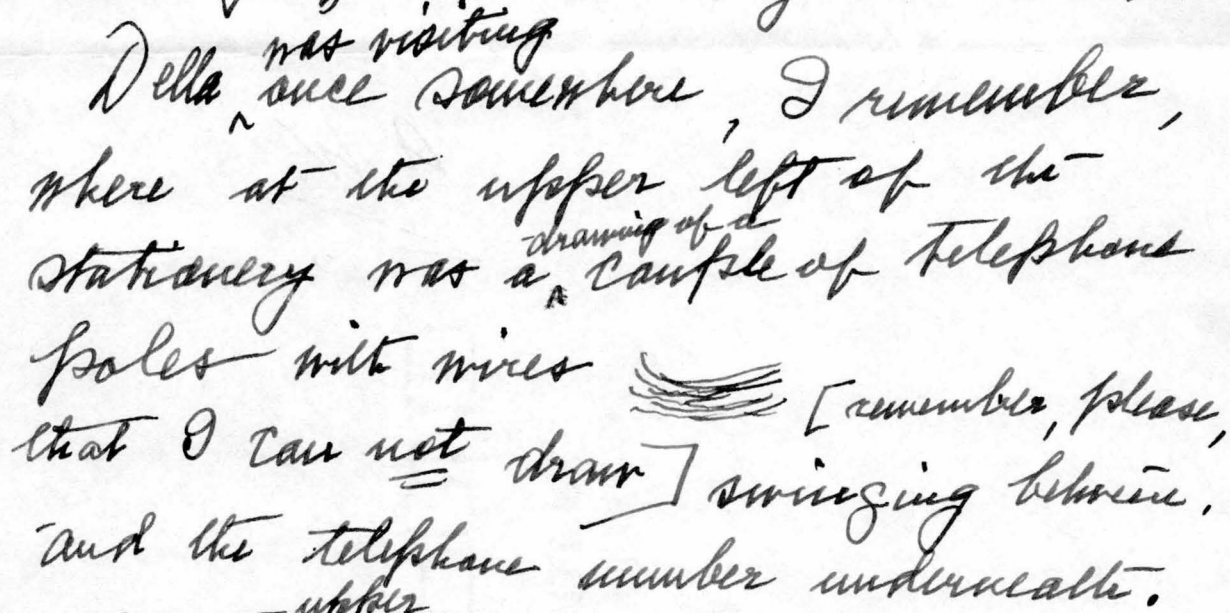 was visiting
Della ^ once somewhere, I remember,
where at the upper left of the
drawing of a
stationery was a ^ couple of telephone
poles with wires [remember, please,
that I can not draw] swinging between,
and the telephone number underneath.
upper